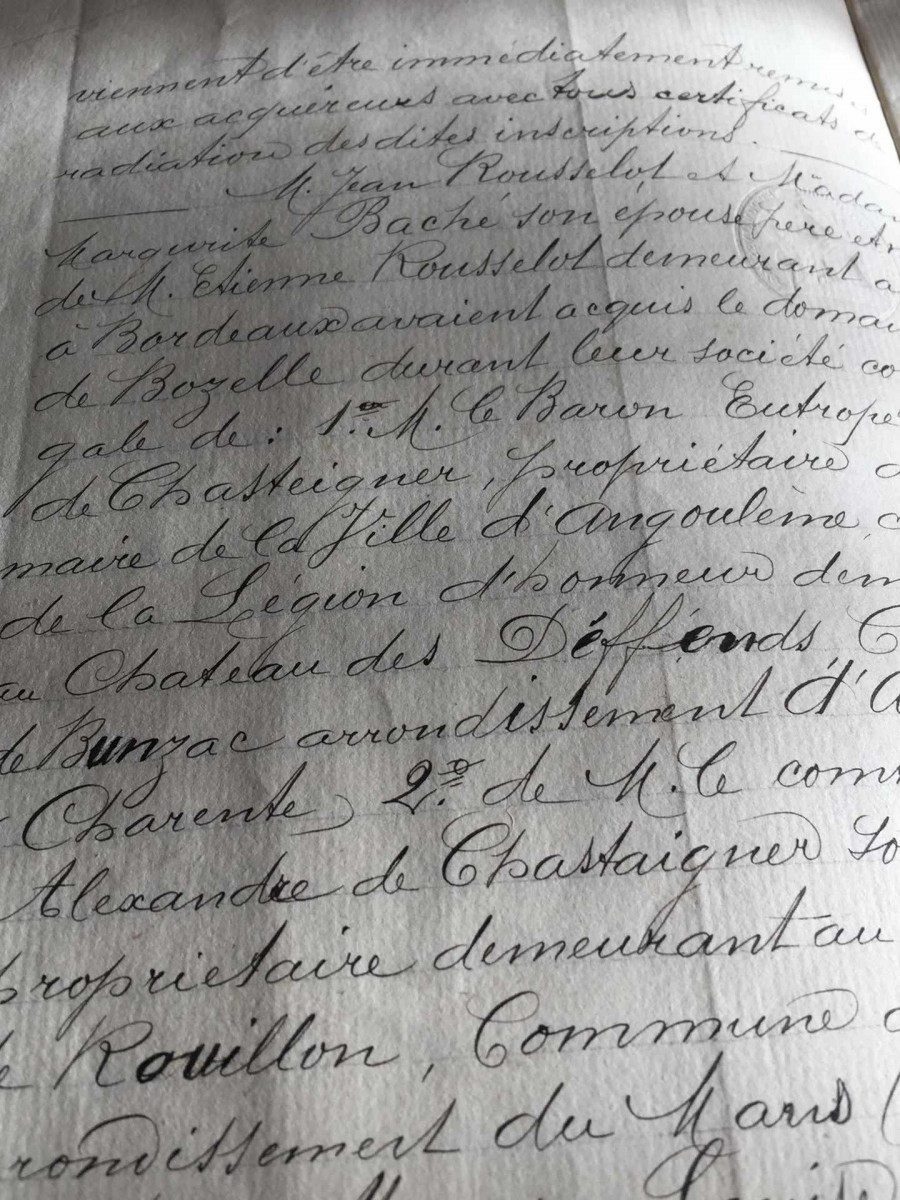 viennent d'être immédiatement remis
aux acquéreurs avec tous certificats de
radiation desdites inscriptions.
M. Jean Rousselot et Madam
Margurite Baché son épouse père et m
de M. Etienne Rousselot demeurant a
à Bordeaux avaient acquis le domai
de Bozelle durant leur société co
gale de : 1.º M. Le Baron Eutrope
de Chasteigner, propriétaire
maire de la Ville d'Angoulême
de la Légion d'honneur dem
au Chateau des Déffends C
de Bunzac arrondissement d'A
Charente 2.º de M. Le com
Alexandre de Chastaigner so
propriétaire demeurant au
Rouillon, Commune
rondissement du Mans (